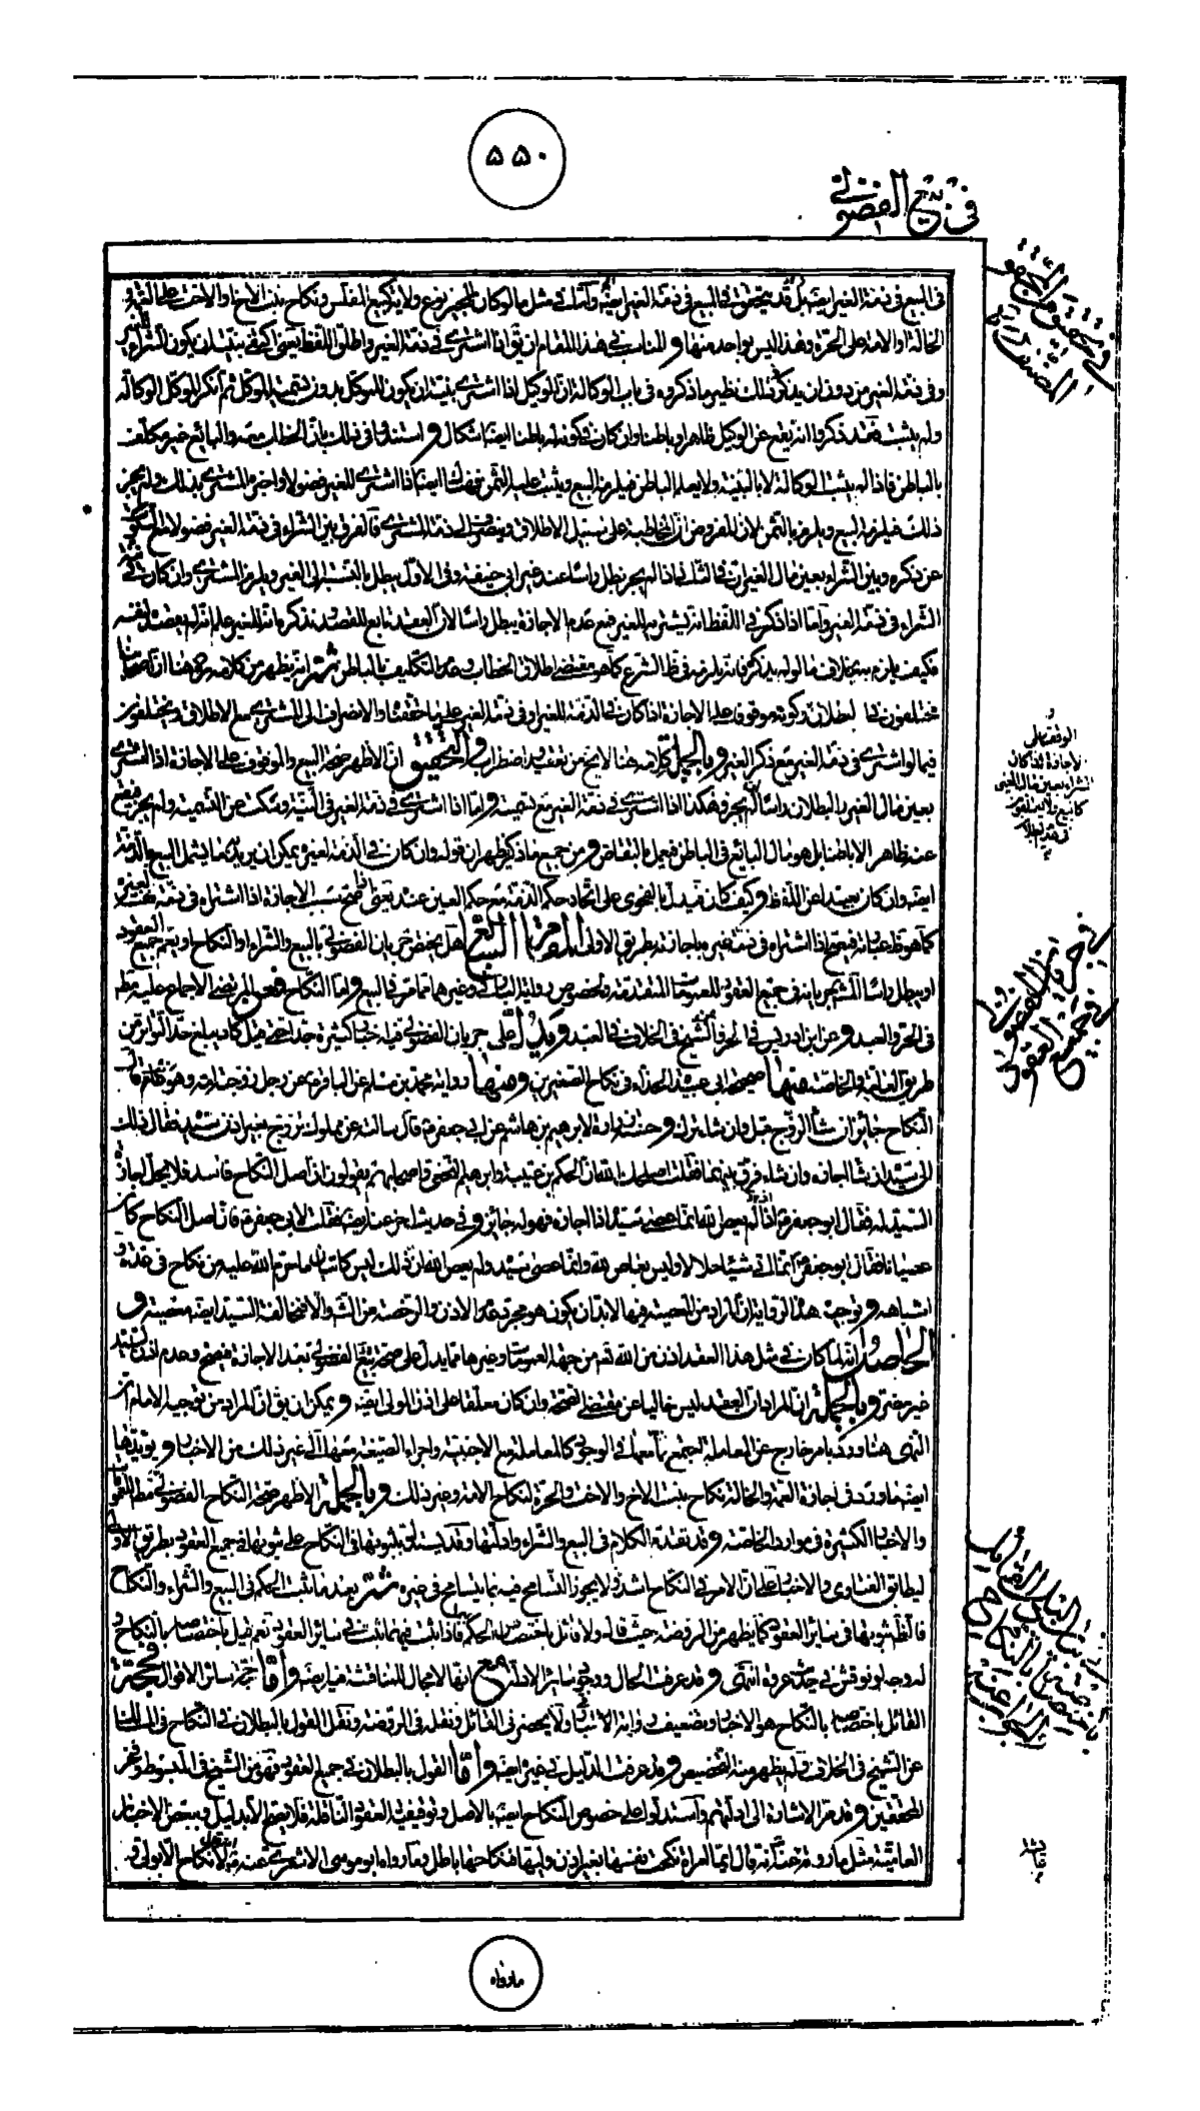 ۵۵۰
في بيع الفضولي
في البيع في ذمة الغير ايضا بل قد يتحقق في البيع في ذمة الغير ايضا وذلك في مثل ما لو كان المجيز نوع ولا يذكر بيع المفلس ونكاح بنت الاخ او الاخت على العمة و
الخالة او الامة على الحرة وهذا ليس بواحد منها والمناسب في هذا المقام ان يق اذا اشترى في ذمة الغير واطلق اللفظ يعني اكتفى بنيته ان يكون الشراء للغير
وفي ذمة الغير من دون ان يذكر ذلك نظير ما ذكروه في باب الوكالة ان الوكيل اذا اشترى بنية ان يكون للموكل بدون تسمية الموكل ثم انكر الموكل الوكالة
ولم يثبت فقد ذكروا انه يقع عن الوكيل ظاهرا وباطنا وان كان في كونه له باطنا ايضا اشكال واستندوا في ذلك بان الخطاب معه والبائع غير مكلف
بالباطن فاذا لم يثبت الوكالة لا بالبينة ولا يعلم الباطن فيلزمه البيع ويثبت عليه الثمن فهناك ايضا اذا اشترى للغير فضولا واخبره المشتري بذلك ولم يجز
ذلك فيلزمه البيع ويلزم بالثمن لان المفروض ان المخاطبة على سبيل الاطلاق وينصرف الى ذمة المشتري فالفرق بين الشراء في ذمة الغير فضولا مع السكوت
عن ذكره وبين الشراء بعين مال الغير ان في الثاني اذا لم يجز بطل راسا عند غير ابي حنيفة وفي الاول يبطل بالنسبة الى الغير ويلزم المشتري وان كان في نيته
الشراء في ذمة الغير واما اذا ذكر في اللفظ انه يشتريه للغير فمع عدم الاجازة يبطل راسا لان العقد تابع للقصد فذكر مانه للغير علم انه لم يقصد لنفسه
فكيف يلزم به بخلاف ما لو لم يذكر فانه يلزمه في ظ الشرع كما هو مقتضى اطلاق الخطاب وعدم التكليف بالباطن ثم انه يظهر من كلامه ره هنا ان اصحابنا
مختلفون في البطلان وكونه موقوفا على الاجازة اذا كان في الذمة للغير او في ذمة الغير على ما حققناه والانصراف الى المشتري مع الاطلاق ويختلفون
فيما لو اشترى في ذمة الغير مع ذكر الغير وبالجملة كلامه هنا لا يخ من تعقيد واضطراب والتحقيق ان الاظهر صحة البيع والوقوف على الاجازة اذا اشترى
بعين مال الغير والبطلان راسا لو لم يجز وهكذا اذا اشترى في ذمة الغير مع تسميته واما اذا اشترى في ذمة الغير في النية وسكت عن التسمية ولم يجز فيقع
عنه ظاهرا لا باطنا بل هو مال البائع في الباطن فيعمل بالتقاص ومن جميع ما ذكر يظهر ان قوله وان كان في الذمة لغيره ويمكن ان يريد به ما يشمل البيع بالذمة
ايضا وان كان بعيدا عن اللفظ وكيف كان فيدل بالفحوى على اتحاد حكم الذمة مع حكم العين عنده يعني اذا صح بسبب الاجازة اذا اشتراه في ذمة نفسه لغيره
كما هو ظ عبارته فيصح اذا اشتراه في ذمة غيره باجازته بطريق الاولى المقام السابع هل يختص جريان الفضولي بالبيع والشراء او النكاح او يعم جميع العقود
او يبطل راسا الاشهر جريانه في جميع العقود للعمومات المتقدمة وخصوص رواية البارقي وغيرها مما مر في البيع واما النكاح فعن المرتضى الاجماع عليه مط
في الحر والعبد وعن ابن ادريس في الحر والشيخ في الخلاف في العبد ويدل على جريان الفضولي فيه اخبار كثيرة جدا حتى قيل كاد يبلغ حد التواتر من
طريق العامة والخاصة منها صحيحة ابي عبيدة الحذاء في نكاح الصغيرين ومنها رواية محمد بن مسلم عن الباقر ع عن رجل زوجته امه وهو غائب قال
النكاح جائز ان شاء الزوج قبل وان شاء ترك وحسنة زرارة لابراهيم بن هاشم عن ابي جعفر ع قال سالته عن مملوك تزوج بغير اذن سيده فقال ذلك
الى سيده ان شاء اجازه وان شاء فرق بينهما فقلت اصلحك الله فان الحكم بن عتيبة وابراهيم النخعي واصحابهم يقولون ان اصل النكاح فاسد فلا يحل اجازة
السيد له فقال ابو جعفر ع انه لم يعص الله انما عصى سيده فاذا اجازه فهو له جائز وفي حديث اخر عنه ايضا فقلت لابي جعفر ع فان اصل النكاح كان
عصيانا فقال ابو جعفر ع انما اتى شيئا حلالا وليس بعاص لله وانما عصى سيده ولم يعص الله ان ذلك ليس كاتيان ما حرم الله عليه من نكاح في عدة و
اشباهه وتوجيه هذه الرواية ان المراد من المعصية فيها لا بد ان يكون هو مجرد عدم الاذن والرخصة من الشرع والا فمخالفة السيد ايضا معصية و
الحاصل انه لما كان في مثل هذا العقد اذن من الله تعم من جهة العمومات وغيرها مما يدل على صحة بيع الفضولي بعد الاجازة فيصح وعدم اذن السيد
غير مضر وبالجملة ان المراد ان العقد ليس خاليا عن مقتضى الصحة وان كان معلقا على اذن المولى ايضا ويمكن ان يق ان المراد من توجيه الامام ان
النهي هنا ورد بامر خارج عن المعاملة اجتمع معها في الوجود كالمعاملة مع الاجنبية واجراء الصيغة معها الى غير ذلك من الاخبار ويؤيدها
ايضا ما ورد في اجازة العمة والخالة نكاح بنت الاخ والاخت والحرة لنكاح الامة وغير ذلك وبالجملة الاظهر صحة النكاح الفضولي مط للعمومات
والاخبار الكثيرة في موارد الخاصة وقد تقدم الكلام في البيع والشراء وادلتها وقد يستدل بثبوتها في النكاح على ثبوتها في جميع العقود بطريق الاولى
لتطابق الفتاوى والاخبار على ان الامر في النكاح اشد ولا يجوز التسامح فيه بما يتسامح في غيره ثم بعد ما ثبت الحكم في البيع والشراء والنكاح
فالظ ثبوتها في سائر العقود كما يظهر من الروضة حيث قال ولا قائل باختصاص الحكم بهما فاذا ثبت فيهما ثبت في سائر العقود نعم قيل باختصاصه بالنكاح و
له وجه لو نوقش في حديث عروة انتهى وقد عرفت الحال ووجود سائر الادلة مع انها لا مجال للمناقشة فيه ايضا واما حجة سائر الاقوال فحجة
القائل باختصاصه بالنكاح هو الاخبار وتضعيف رواية البارقي ولا يحضرني القائل ونقله في الروضة ونقل القول بالبطلان في النكاح في المسالك
عن الشيخ في الخلاف ولم يظهر منه التخصيص وقد عرفت الدليل في غيره ايضا واما القول بالبطلان في جميع العقود فهو من الشيخ في المبسوط وفخر
المحققين وقد مر الاشارة الى ادلتهم واستدلوا على خصوص النكاح ايضا بالاصل وتوقيفية العقود الناقلة فلا يصح الا بدليل وببعض الاخبار
العامية مثل ما روته عايشة انه قال ايما امراة نكحت نفسها بغير اذن وليها فنكاحها باطل وما رواه ابو موسى الاشعري عنه ص انه قال لا نكاح الا بولي و
الوقف على
الاجازة اذا كان
الشراء بعين مال الغير
في جريان الفضولي
في جميع العقود